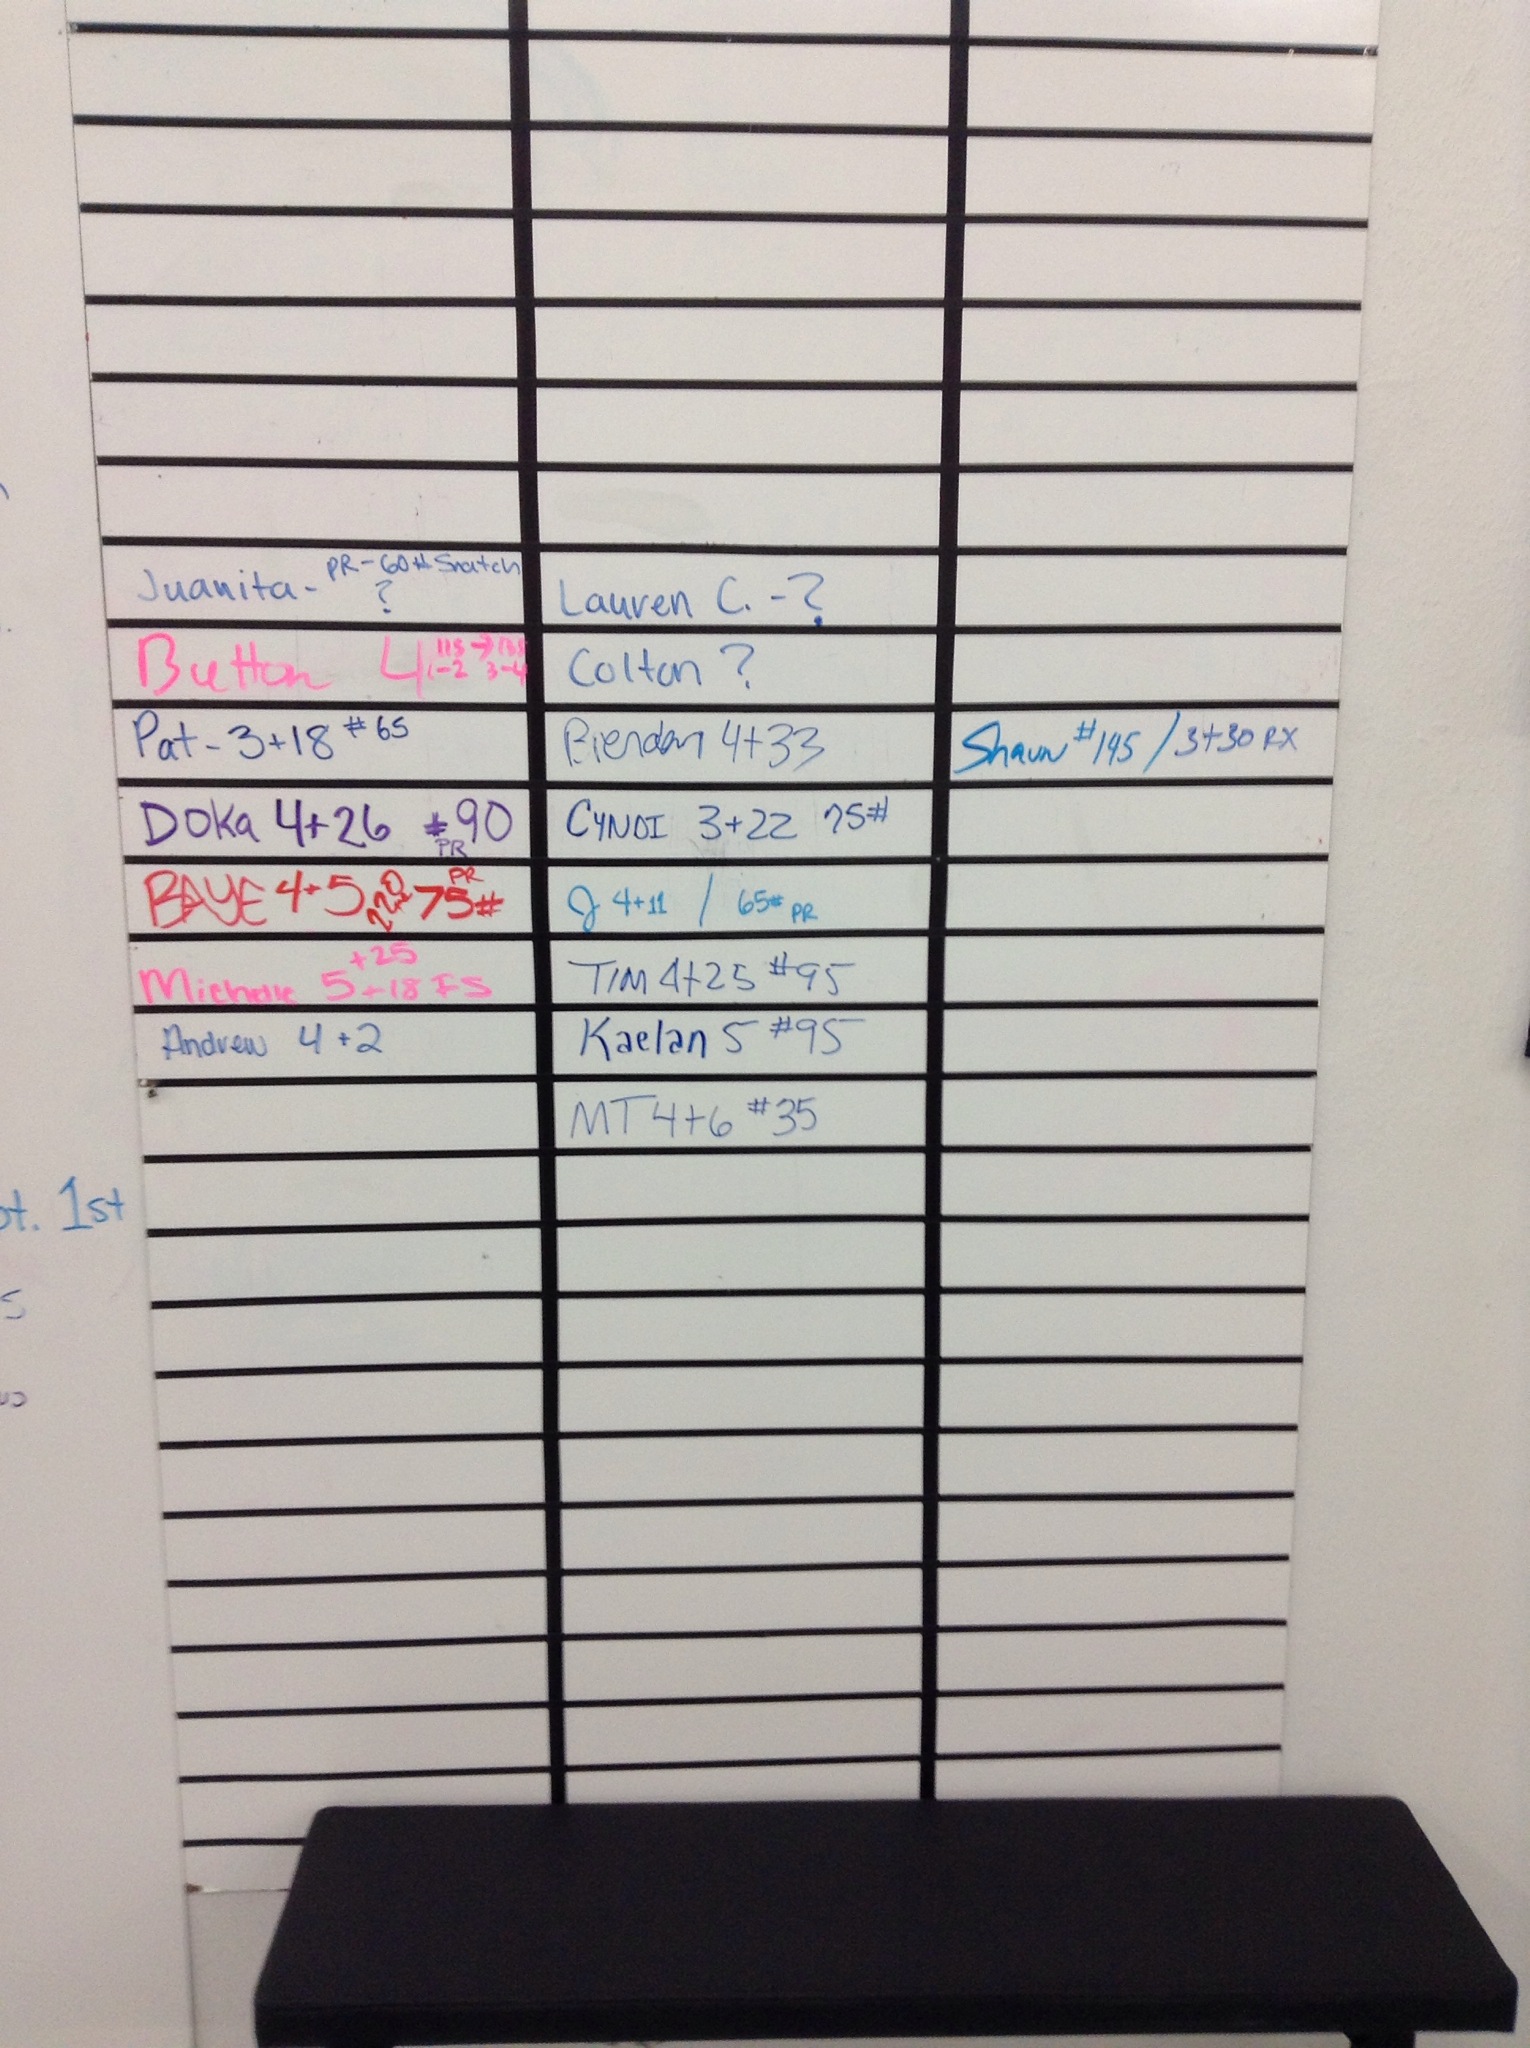 PR-60# Snatch
Juanita - ?
Button 4 115 → 135
1-2 3-4
Pat - 3+18 #65
DOKA 4+26 #90
PR
BAYE 4+5 75#
PR
+25
Michele 5+18 FS
Andrew 4+2
Lauren C. - ?
Colton ?
Brendan 4+33
CYNDI 3+22 75#
J 4+11 / 65# PR
TIM 4+25 #95
Kaelan 5 #95
MT 4+6 #35
Shaun #145 / 3+30 RX
1st